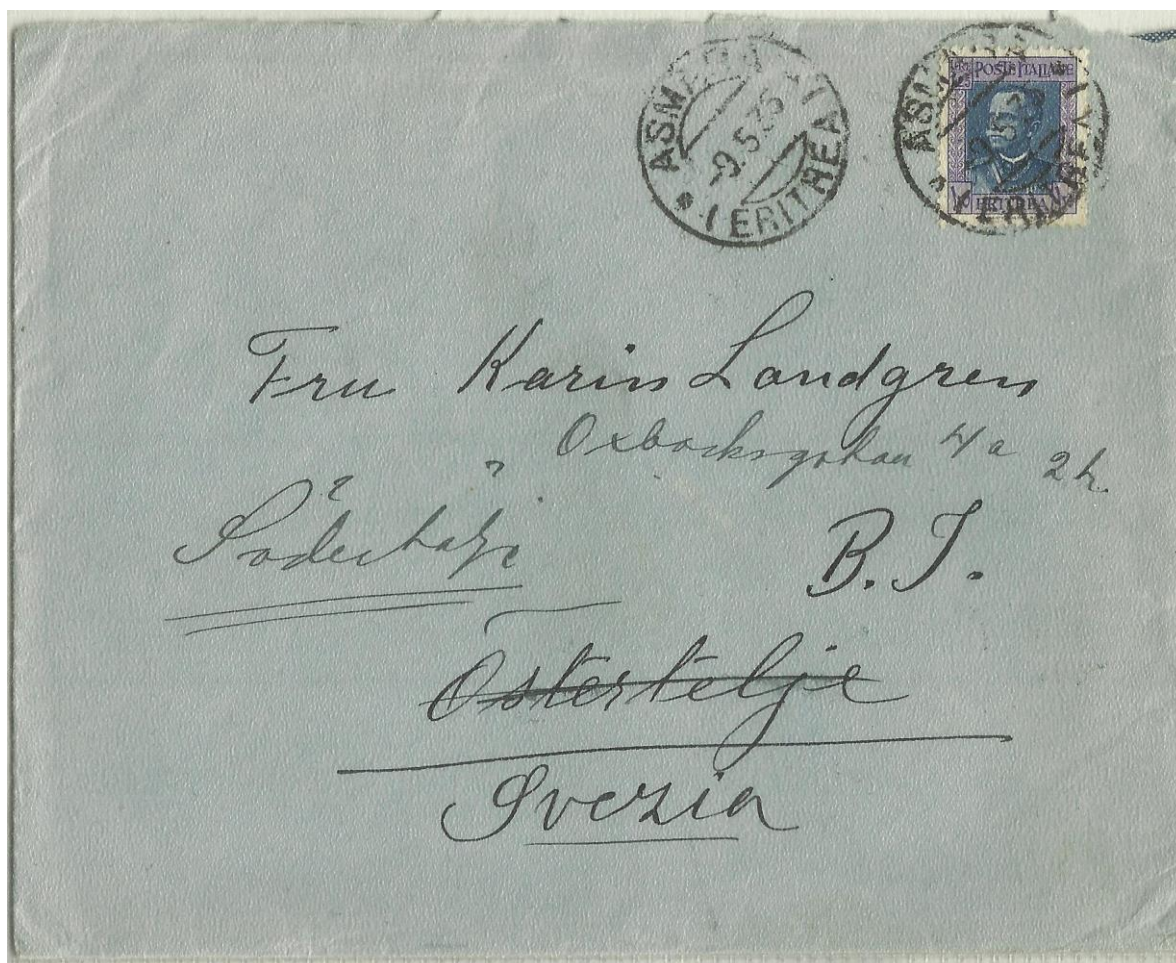 ASMARA
-9.5.35
(ERITREA)
POSTE ITALIANE
ERITREA
Fru Karin Landgren
Oxbacksgatan 4a 2 tr.
? ?
Södertälje
B. J.
Östertelje
Svezia